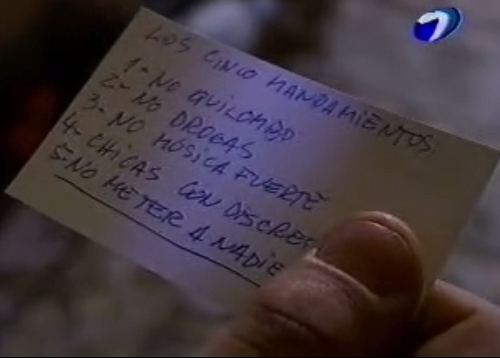 LOS CINCO MANDAMIENTOS
1- NO QUILOMBO
2- NO DROGAS
3- NO MÚSICA FUERTE
4- CHICAS CON DISCRE
5- NO METER A NADIE
7